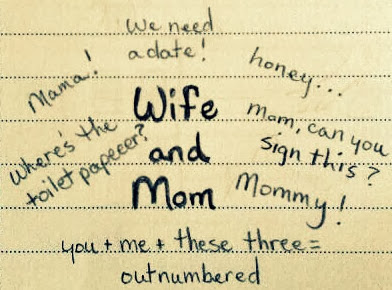 We need
a date!
Mama!
honey...
Wife
and
Mom
Where's the
toilet papeeer?
mom, can you
sign this?
Mommy!
you + me + these three =
outnumbered